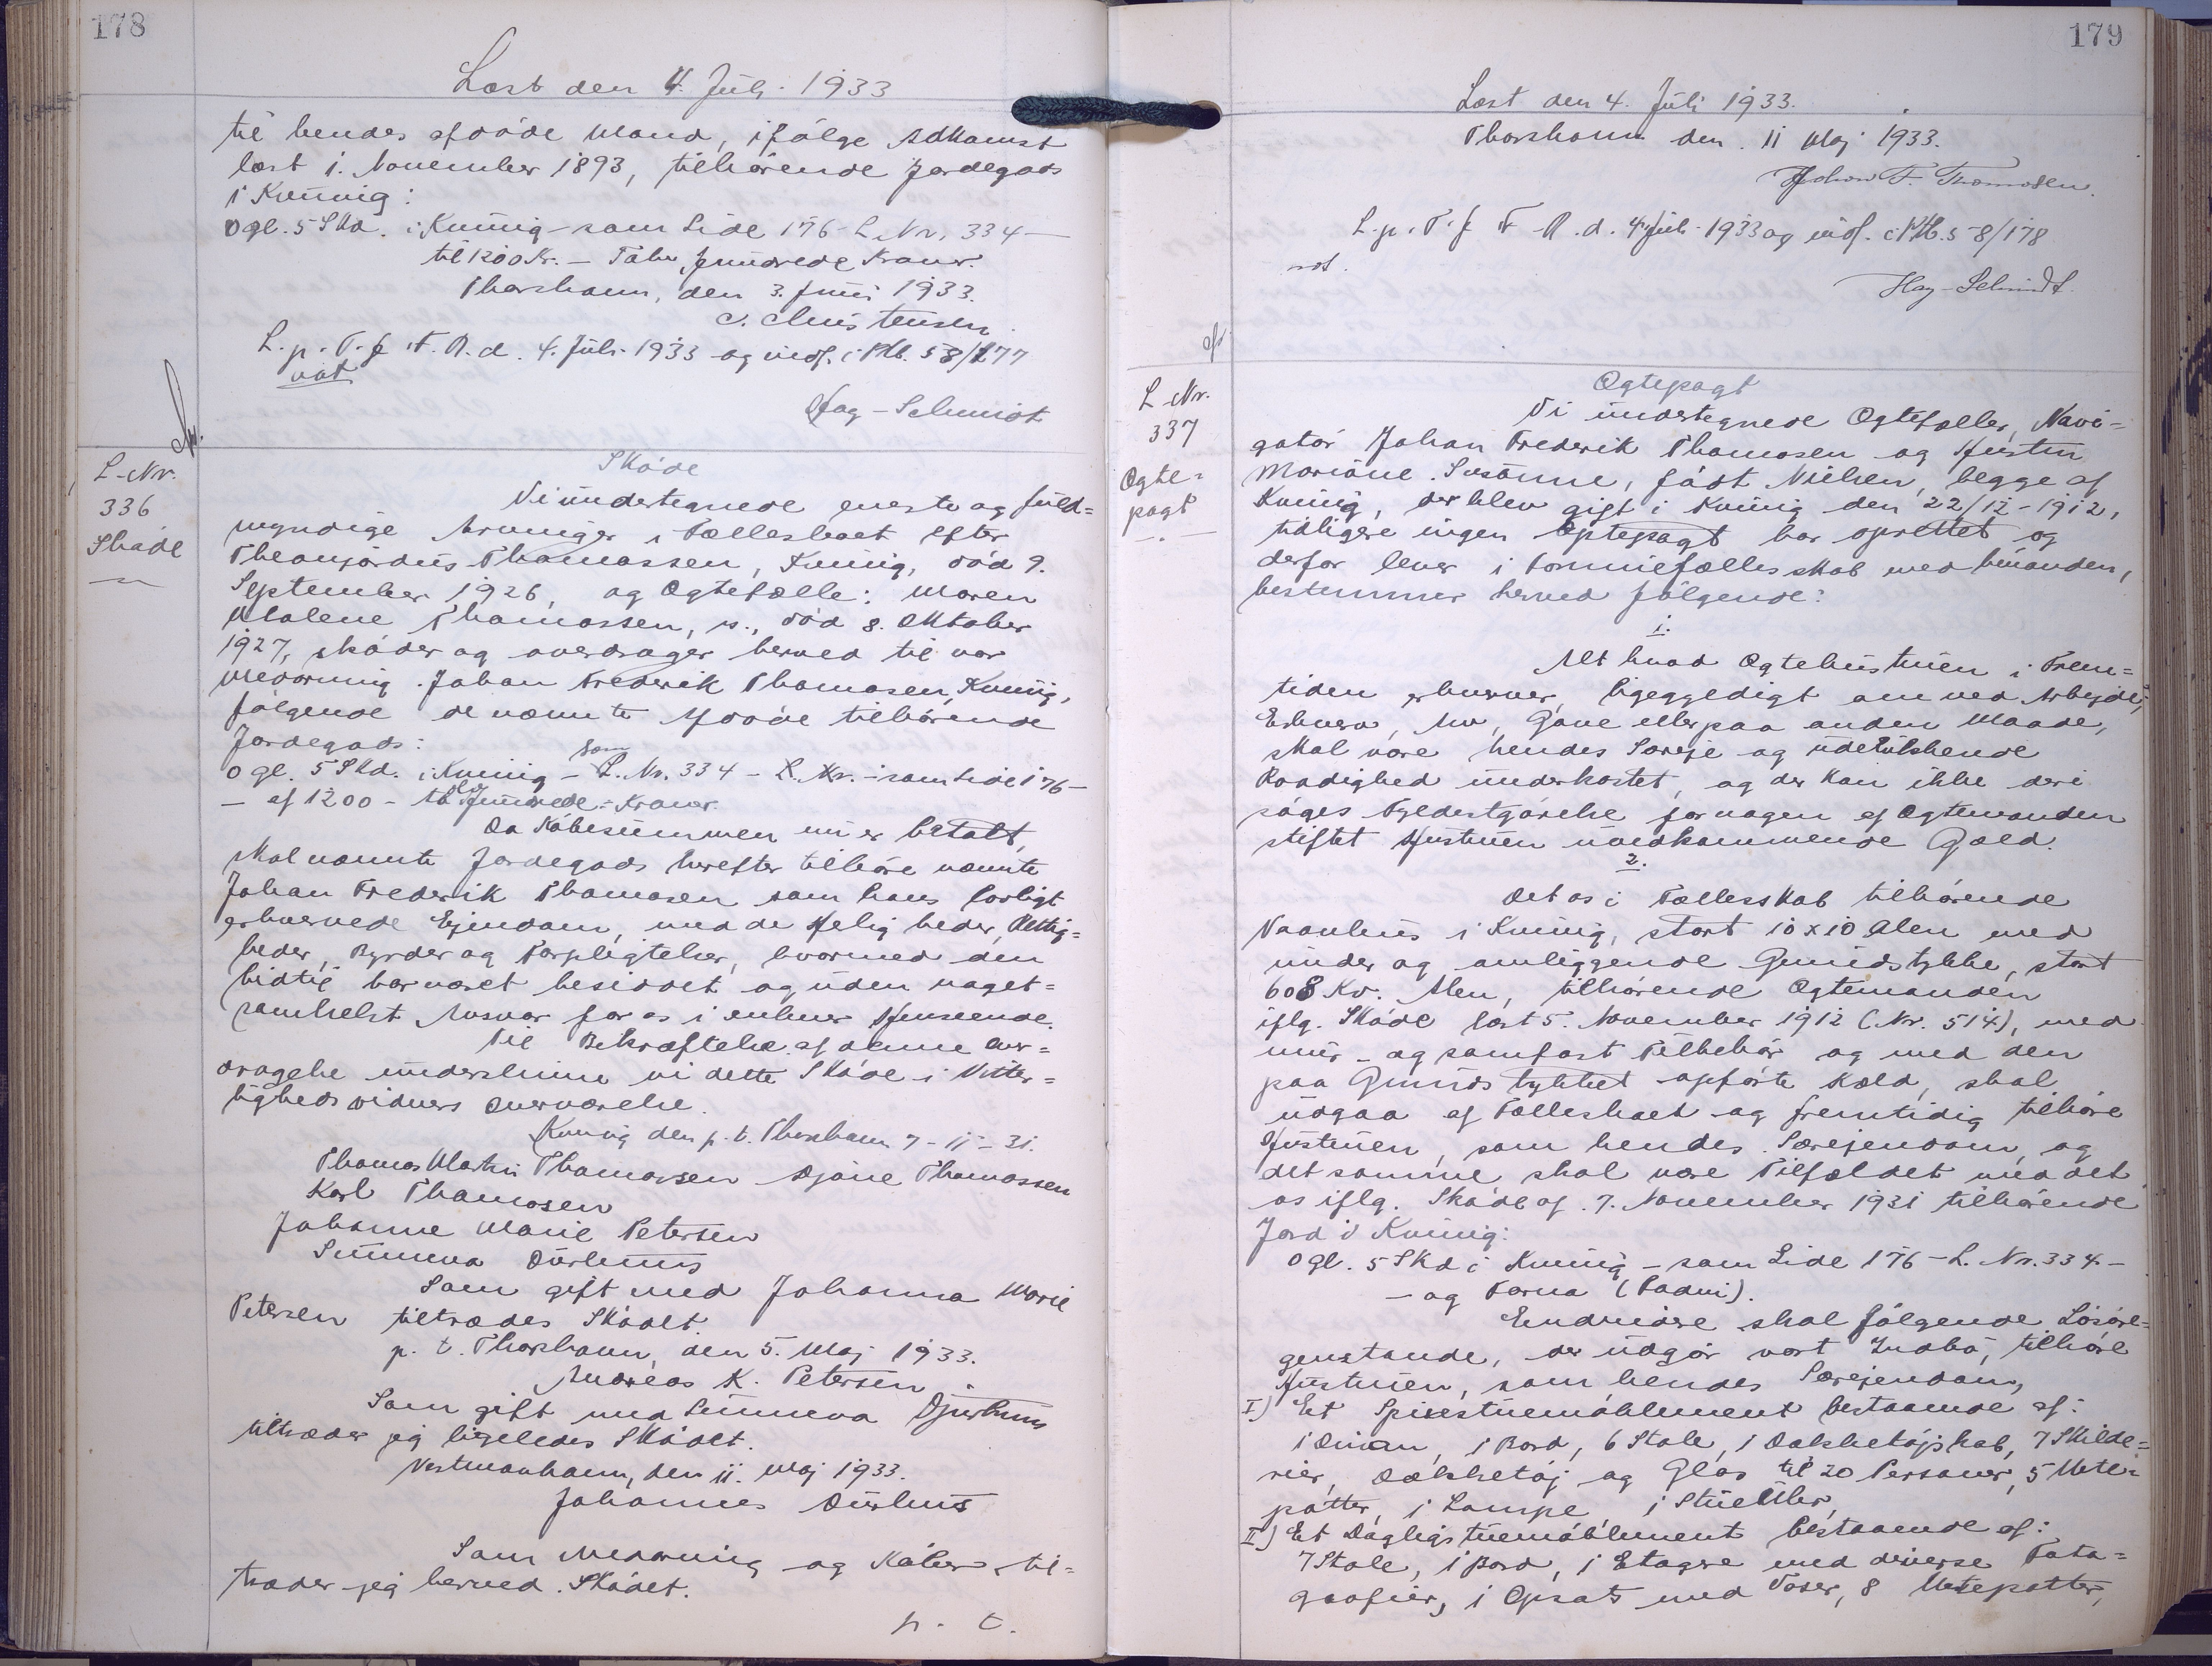 178
Læst den 4. Juli 1933
til hendes afdöde Mand, ifölge Adkomst
læst 1. November 1893, tilhörende Jordegods
i Kvivig:
0 gl. 5 Skd. i Kvivig - som Side 176 L. Nr. 334 -
til 1200 Kr. - Tolv hundrede Kroner.
Thorshavn, den 3. Juni 1933.
C. Christensen
L. p. T. f. F. R. d. 4. Juli 1933 og indf. i Ptb. 58/177
not
Hag-Schmidt
L. Nr.
336
Sköde
Sköde
Vi undertegnede eneste og fuld=
myndige Arvinger i Fællesboet efter
Thomassen, Kvivig, död 9.
September 1926, og Ogtefælle: Maren
Malene Thomassen, s., död 8. Oktober
1927, sköder og overdrager herved til vor
Medarving Johan Frederik Thomasen, Kvivig,
fölgende de nævnte Afdöde tilhörende
Jordegods:
0 gl. 5 Skd. i Kvivig - som L. Nr. 334 - L. Nr. - som Side 176 -
- af 1200 - tolv hundrede - Kroner.
Da Köbesummen nu er betalt,
skal nævnte Jordegods herefter tilhöre nævnte
Johan Frederik Thomasen som hans lovligt
erhvervede Ejendom, med de Herligheder, Rettig=
heder, Byrder og Forpligtelser, hvormed den
hidtil har været besiddet og uden noget=
somhelst Ansvar for os i enhver Henseende.
Til Bekræftelse af denne Over=
dragelse underskrive vi dette Sköde i Vitter=
lighedsvidners Overværelse.
Kvivig den p. t. Thorshavn 7-11-31.
Thomas Martin Thomassen Thomassen
Karl Thomasen
Johanne Marie Petersen
Sunneva Durhuus
Som gift med Johanna Marie
Petersen tiltrædes Sködet.
p. t. Thorshavn, den 5. Maj 1933.
Andreas K. Petersen
Som gift med Sunneva Djurhuus
tiltræder jeg ligeledes Sködet.
Vestmanhavn, den 11. Maj 1933.
Johannes Durhuus
Som Medarving og Köber til=
træder jeg herved Sködet.
p. t.
179
Læst den 4. Juli 1933.
Thorshavn den 11 Maj 1933.
Johan F. Thomasen.
L. p. T. f. F. R. d. 4. Juli 1933 og indf. i Ptb. 58/178
not.
Hag-Schmidt.
L. Nr.
337
Ogte=
pagt
Ogtepagt
Vi undertegnede Ogtefæller, Navi=
gatör Johan Frederik Thomasen og Hustru
Mariane Susanne, född Nielsen, begge af
Kvivig, der blev gift i Kvivig den 22/12-1912,
tidligere ingen Ogtepagt har oprettet og
derfor lever i Formuefællesskab med hinanden,
bestemmer herved fölgende:
1.
Alt hvad Ogtehustruen i Frem=
tiden erhverver, ligegyldigt om ved Arbejde,
Erhverv, Arv, Gave eller paa anden Maade,
skal være hendes Særeje og udelukkende
Raadighed underkastet, og der kan ikke deri
söges Fyldestgörelse for nogen af Ogtemanden
stiftet Hustruen uvedkommende Gæld.
2.
Det os i Fællesskab tilhörende
Vaanhus i Kvivig, stort 10 x 10 Alen med
under og omliggende Grundstykke, stort
608 Kv. Alen, tilhörende Ogtemanden
iflg. Sköde læst 5. November 1912 (Nr. 514), med
mur- og sömfast Tilbehör og med den
paa Grundstykket opförte Kæld, skal
udgaa af Fællesboet og fremtidig tilhöre
Hustruen, som hendes Særejendom, og
det samme skal være Tilfældet med det
os iflg. Sköde af 7. November 1931 tilhörende
Jord i Kvivig:
0 gl. 5 Skd i Kvivig - som Side 176 - L. Nr. 334 -
- og
Endvidere skal fölgende Lösöre=
genstande, der udgör vort Indbo, tilhöre
Hustruen, som hendes Særejendom,
I) Et Spisestuemöblement bestaaende af:
1 Divan, 1 Bord, 6 Stole, 1 Dækketöjskab, 7 Skilde=
rier, Dækketöj og Glas til 20 Personer, 5 Urte=
potter, 1 Lampe 1 Stueuhr,
II) Et Dagligstuemöblement bestaaende af:
7 Stole, 1 Bord, 1 Etagere med diverse Foto=
grafier, 1 Opsats med Vaser, 8 Urtepotter,